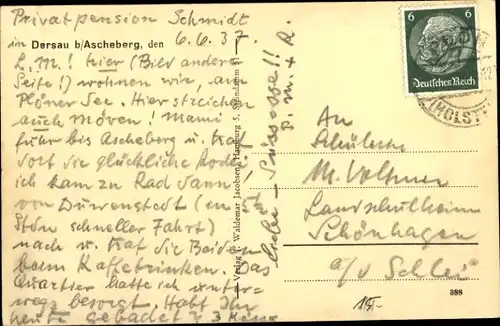 Privatpension Schmidt
in Dersau b/Ascheberg, den 6.6.37.
L. M.! hier (Bild andere
Seite!) wohnen wir, am
Plöner See. Hier streichen
auch Möven! Mami
fuhr bis Ascheberg u. traf
dort die glückliche
ich kam zu Rad dann
von Düvenstedt (in 5
Stdn schneller Fahrt)
nach u. traf die Beiden
beim Kaffetrinken.
Quartier hatte ich unter-
wegs besorgt. Habt Ihr
heute gebadet? 3
Das Liebe - Süsseste!!
P. M. + R.
Verlag Waldemar Jacobsen, Hamburg 5,
6 6
Deutsches Reich
(HOLST
An
Schülerin
M. Voltmer
Landschulheim
Schönhagen
a/d Schlei
388
15.-